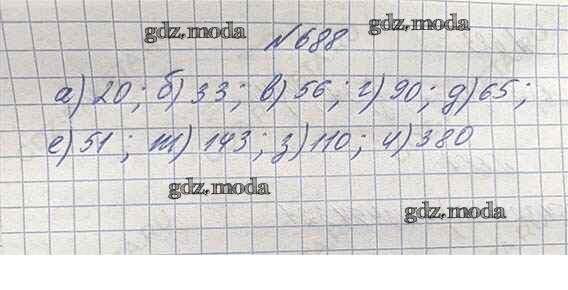 gdz.moda
gdz.moda
№688
а) 20; б) 33; в) 56; г) 90; д) 65;
е) 51; ж) 143; з) 110; и) 380
gdz.moda
gdz.moda